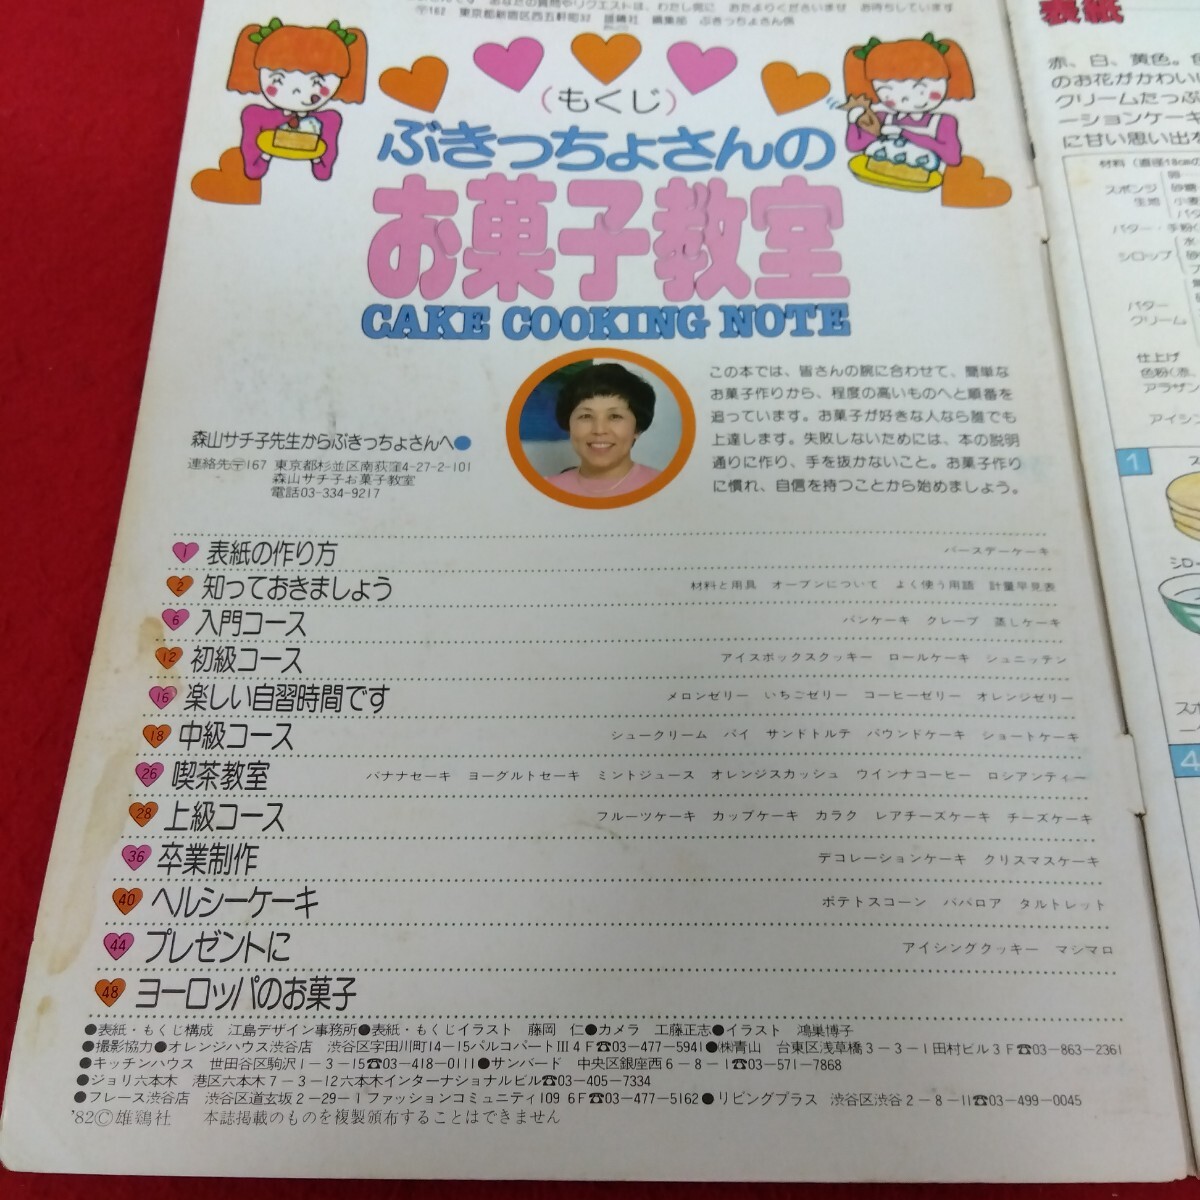 あなたの質問やリクエストは、わたし宛に おたよりくださいませ お待ちしています
〒162 東京都新宿区西五軒町32 雄鶏社 編集部 ぶきっちょさん係
(もくじ)
ぶきっちょさんの
お菓子教室
CAKE COOKING NOTE
この本では、皆さんの腕に合わせて、簡単な
お菓子作りから、程度の高いものへと順番を
追っています。お菓子が好きな人なら誰でも
上達します。失敗しないためには、本の説明
通りに作り、手を抜かないこと。お菓子作り
に慣れ、自信を持つことから始めましょう。
森山サチ子先生からぶきっちょさんへ●
連絡先〒167 東京都杉並区南荻窪4-27-2-101
森山サチ子お菓子教室
電話03-334-9217
1 表紙の作り方 バースデーケーキ
2 知っておきましょう 材料と用具 オーブンについて よく使う用語 計量早見表
6 入門コース パンケーキ クレープ 蒸しケーキ
12 初級コース アイスボックスクッキー ロールケーキ シュニッテン
16 楽しい自習時間です メロンゼリー いちごゼリー コーヒーゼリー オレンジゼリー
18 中級コース シュークリーム パイ サンドトルテ パウンドケーキ ショートケーキ
26 喫茶教室 バナナセーキ ヨーグルトセーキ ミントジュース オレンジスカッシュ ウインナコーヒー ロシアンティー
28 上級コース フルーツケーキ カップケーキ カラク レアチーズケーキ チーズケーキ
36 卒業制作 デコレーションケーキ クリスマスケーキ
40 ヘルシーケーキ ポテトスコーン ババロア タルトレット
44 プレゼントに アイシングクッキー マシマロ
48 ヨーロッパのお菓子
●表紙・もくじ構成 江島デザイン事務所●表紙・もくじイラスト 藤岡 仁●カメラ 工藤正志●イラスト 鴻巣博子
●撮影協力●オレンジハウス渋谷店 渋谷区宇田川町14-15パルコパートIII 4F☎03-477-5941●㈱青山 台東区浅草橋3-3-1田村ビル3F☎03-863-2361
●キッチンハウス 世田谷区駒沢1-3-15☎03-418-0111●サンバード 中央区銀座西6-8-1☎03-571-7868
●ジョリ六本木 港区六本木7-3-12六本木インターナショナルビル☎03-405-7334
●フレース渋谷店 渋谷区道玄坂2-29-1ファッションコミュニティ109 6F☎03-477-5162●リビングプラス 渋谷区渋谷2-8-11☎03-499-0045
'82©雄鶏社 本誌掲載のものを複製頒布することはできません
表紙
赤、白、黄色。
のお花がかわい
クリームたっぷ
ーションケーキ
に甘い思い出
材料(直径18cmの
卵
スポンジ 砂糖
生地 小麦
バタ
バター・手粉
水
シロップ 砂
バター
クリーム
仕上げ
色粉(赤、
アラザン
アイシン
1
シロ
スポ
4